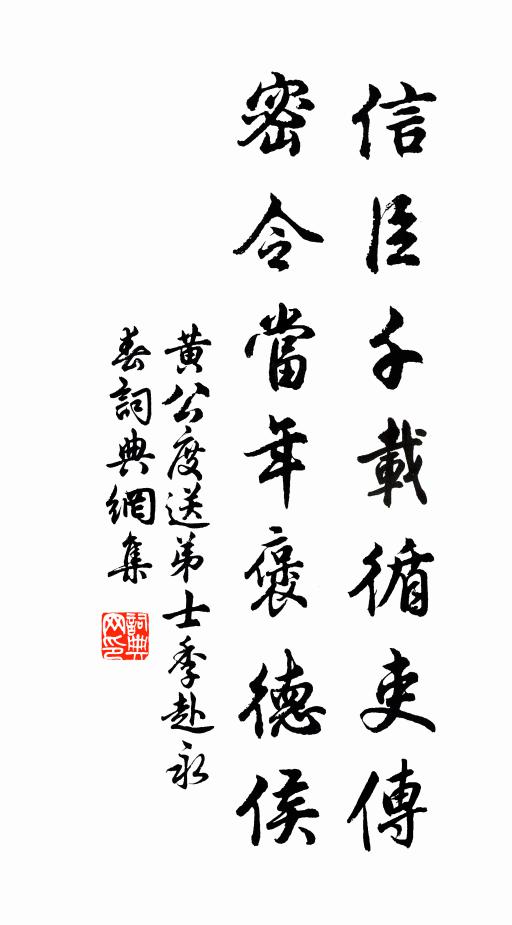 信臣千載循吏傳
密令當年褒德侯
黃公度送弟士季赴永
春詞典網集
詞典
网印